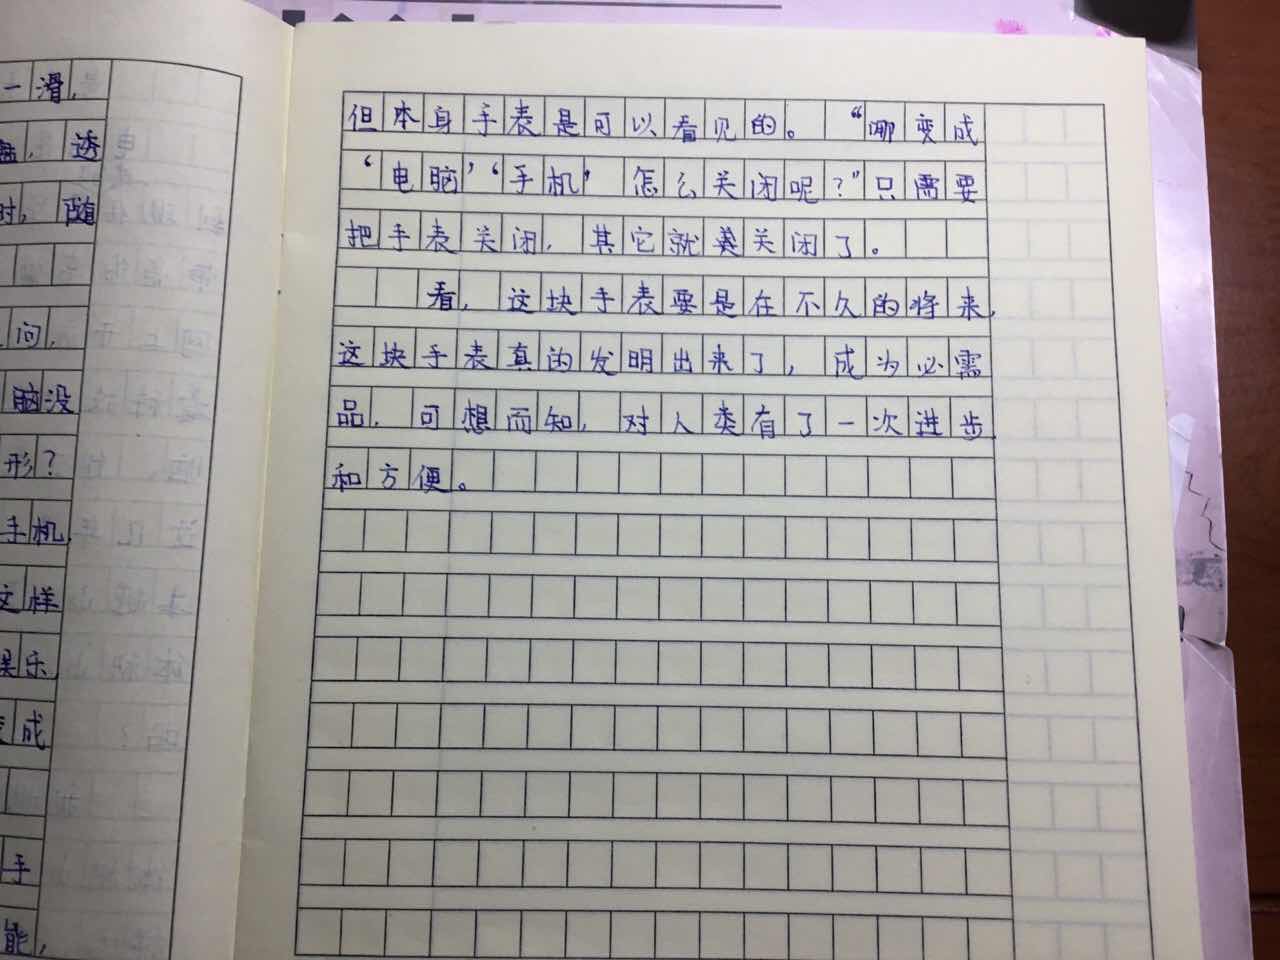 一滑,
透
时, 随
问,
脑没
形?
手机
这样
娱乐
变成
手
能,
但本身手表是可以看见的。“哪变成
‘电脑’‘手机’怎么关闭呢?”只需要
把手表关闭, 其它就关闭了。
看, 这块手表要是在不久的将来,
这块手表真的发明出来了, 成为必需
品, 可想而知, 对人类有了一次进步
和方便。